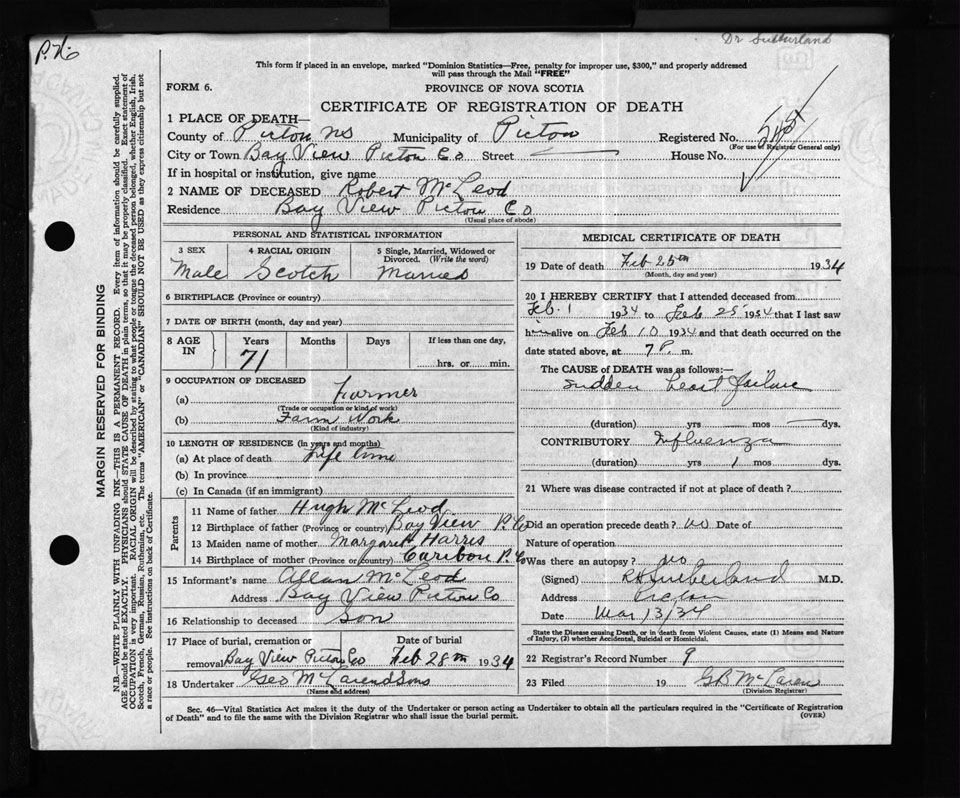 Dr Sutherland
P. No
This form if placed in an envelope, marked "Dominion Statistics—Free, penalty for improper use, $300," and properly addressed
will pass through the Mail "FREE"
FORM 6.
PROVINCE OF NOVA SCOTIA
CERTIFICATE OF REGISTRATION OF DEATH
1 PLACE OF DEATH—
County of Pictou NS Municipality of Pictou Registered No.
(For use of Registrar General only)
City or Town Bay View Pictou Co Street House No.
If in hospital or institution, give name
2 NAME OF DECEASED Robert McLeod
Residence Bay View Pictou Co
(Usual place of abode)
PERSONAL AND STATISTICAL INFORMATION
3 SEX 4 RACIAL ORIGIN 5 Single, Married, Widowed or
Divorced. (Write the word)
Male Scotch Married
6 BIRTHPLACE (Province or country)
7 DATE OF BIRTH (month, day and year)
8 AGE Years Months Days If less than one day,
IN 71 hrs. or min.
9 OCCUPATION OF DECEASED
(a) Farmer
(Trade or occupation or kind of work)
(b) Farm Work
(Kind of industry)
10 LENGTH OF RESIDENCE (in years and months)
(a) At place of death Life time
(b) In province
(c) In Canada (if an immigrant)
Parents
11 Name of father Hugh McLeod
12 Birthplace of father (Province or country) Bay View P. Co
13 Maiden name of mother Margaret Harris
14 Birthplace of mother (Province or country) Caribou P. Co
15 Informant's name Allan McLeod
Address Bay View Pictou Co
16 Relationship to deceased Son
17 Place of burial, cremation or Date of burial
removal Bay View Pictou Co Feb 28th 1934
18 Undertaker Geo McLaren & Sons
(Name and address)
MEDICAL CERTIFICATE OF DEATH
19 Date of death Feb 25th 1934
(Month, day and year)
20 I HEREBY CERTIFY that I attended deceased from
Feb. 1 1934 to Feb 25 1934 that I last saw
him alive on Feb 10 1934 and that death occurred on
date stated above, at 7 P. m.
The CAUSE of DEATH was as follows:—
Sudden heart failure
(duration) yrs mos dys.
CONTRIBUTORY Influenza
(duration) yrs 1 mos dys.
21 Where was disease contracted if not at place of death?
Did an operation precede death? no Date of
Nature of operation
Was there an autopsy? no
(Signed) Sutherland M.D.
Address Pictou
Date Mar 13/34
State the Disease causing Death, or in death from Violent Causes, state (1) Means and Nature
of Injury, (2) whether Accidental, Suicidal or Homicidal.
22 Registrar's Record Number 9
23 Filed 19 G B McLaren
(Division Registrar)
Sec. 46—Vital Statistics Act makes it the duty of the Undertaker or person acting as Undertaker to obtain all the particulars required in the "Certificate of Registration
of Death" and to file the same with the Division Registrar who shall issue the burial permit.
(OVER)
MARGIN RESERVED FOR BINDING
N.B.—WRITE PLAINLY WITH UNFADING INK—THIS IS A PERMANENT RECORD. Every item of information should be carefully supplied.
AGE should be stated EXACTLY. PHYSICIANS should STATE CAUSE OF DEATH in plain terms, so that it may be properly classified. Exact statement of
OCCUPATION is very important. RACIAL ORIGIN will be described by stating to what people or tongue the deceased person belonged, whether English, Irish,
Scotch, French, German, Russian, Ruthenian, etc. The terms "AMERICAN" or "CANADIAN" SHOULD NOT BE USED as they express citizenship but not
a race or people. See instructions on back of Certificate.